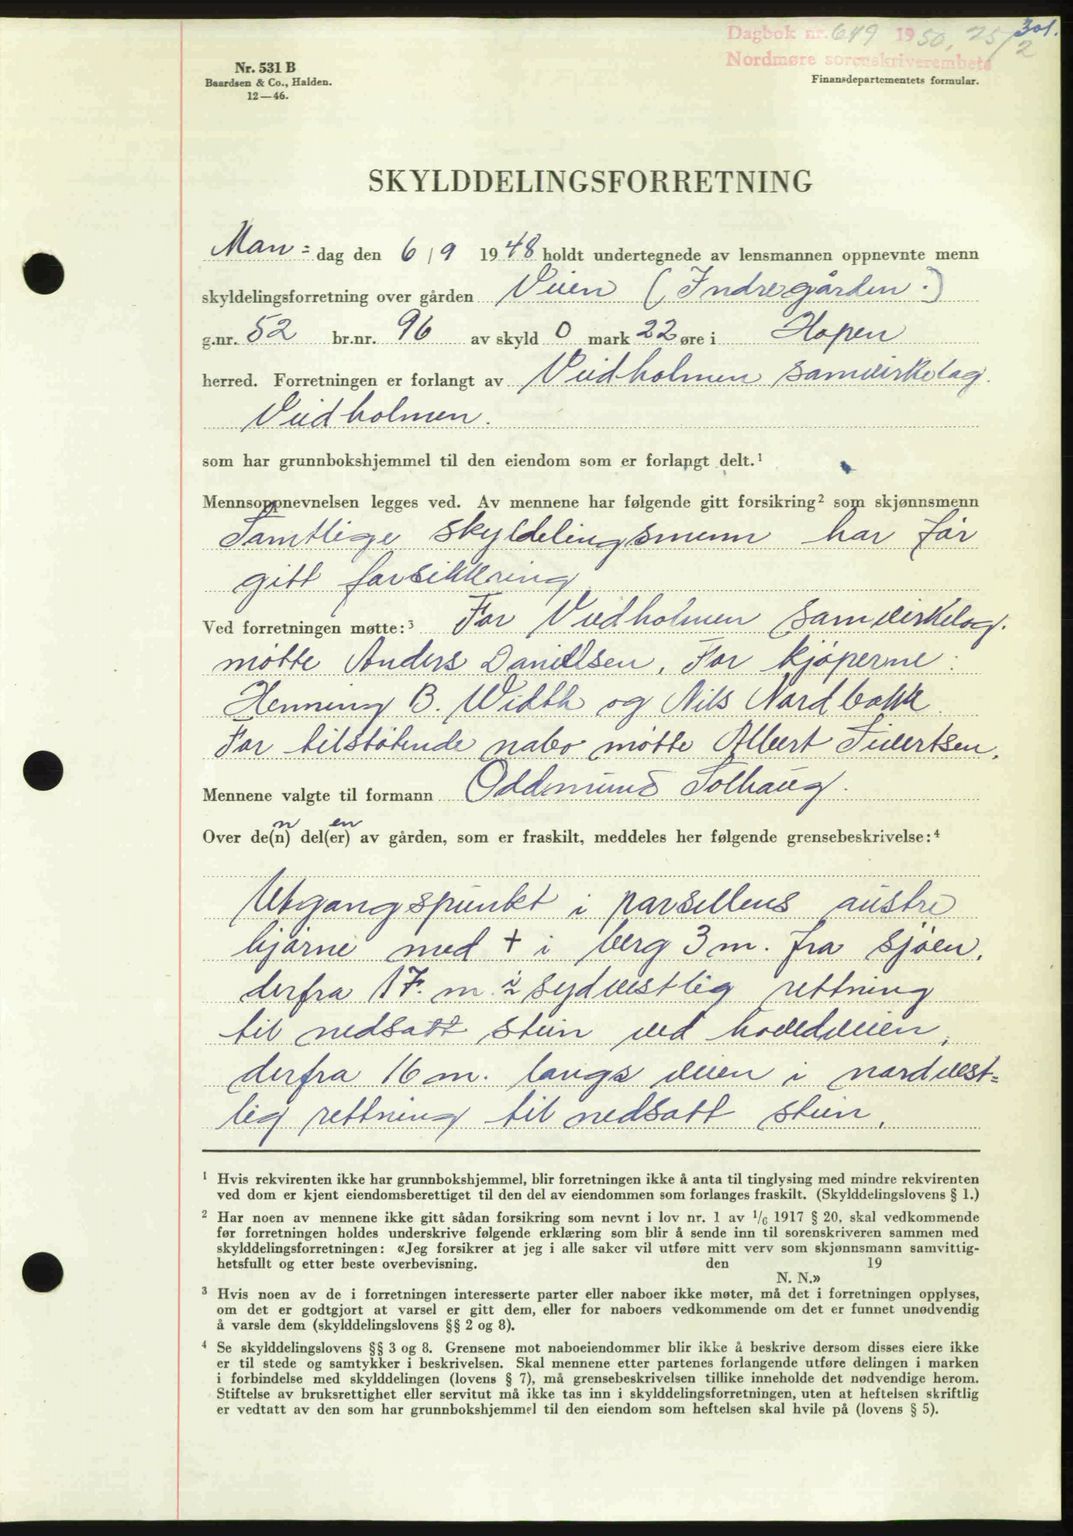 Dagbok nr. 649 1950, 25/2
301.
Nordmøre sorenskriverembete
Nr. 531 B
Baardsen & Co., Halden.
12—46.
Finansdepartementets formular.
SKYLDDELINGSFORRETNING
Man= dag den 6/9 1948 holdt undertegnede av lensmannen oppnevnte menn
skyldelingsforretning over gården Veien (Indregården.)
g.nr. 52 br.nr. 96 av skyld 0 mark 22 øre i Hopen
herred. Forretningen er forlangt av Veidholmen samvirkelag.
Veidholmen.
som har grunnbokshjemmel til den eiendom som er forlangt delt.¹
Mennsoppnevnelsen legges ved. Av mennene har følgende gitt forsikring² som skjønnsmenn
Samtlige skyldelingsmenn har før
gitt forsikkring
Ved forretningen møtte:³ For Veidholmen samvirkelag.
møtte Anders Danielsen. For kjøperne:
Henning B. Width og Nils Nordbakk.
For tilstøtende nabo møtte Albert Sivertsen.
Mennene valgte til formann Oddmund Solhaug.
Over de(n) del(er) av gården, som er fraskilt, meddeles her følgende grensebeskrivelse:⁴
Utgangspunkt i parsellens austre
hjørne med + i berg 3 m. fra sjøen,
derfra 17. m. i sydvestlig rettning
til nedsatt stein ved hovedveien,
derfra 16 m. langs veien i nordvest=
lig rettning til nedsatt stein,
¹ Hvis rekvirenten ikke har grunnbokshjemmel, blir forretningen ikke å anta til tinglysing med mindre rekvirenten
ved dom er kjent eiendomsberettiget til den del av eiendommen som forlanges fraskilt. (Skylddelingslovens § 1.)
² Har noen av mennene ikke gitt sådan forsikring som nevnt i lov nr. 1 av 1/6 1917 § 20, skal vedkommende
før forretningen holdes underskrive følgende erklæring som blir å sende inn til sorenskriveren sammen med
skylddelingsforretningen: «Jeg forsikrer at jeg i alle saker vil utføre mitt verv som skjønnsmann samvittig-
hetsfullt og etter beste overbevisning. den 19
N. N.»
³ Hvis noen av de i forretningen interesserte parter eller naboer ikke møter, må det i forretningen opplyses,
om det er godtgjort at varsel er gitt dem, eller for naboers vedkommende om det er funnet unødvendig
å varsle dem (skylddelingslovens §§ 2 og 8).
⁴ Se skylddelingslovens §§ 3 og 8. Grensene mot naboeiendommer blir ikke å beskrive dersom disses eiere ikke
er til stede og samtykker i beskrivelsen. Skal mennene etter partenes forlangende utføre delingen i marken
i forbindelse med skylddelingen (lovens § 7), må grensebeskrivelsen tillike inneholde det nødvendige herom.
Stiftelse av bruksrettighet eller servitut må ikke tas inn i skylddelingsforretningen, uten at heftelsen skriftlig
er vedtatt av den som har grunnbokshjemmel til den eiendom som heftelsen skal hvile på (lovens § 5).